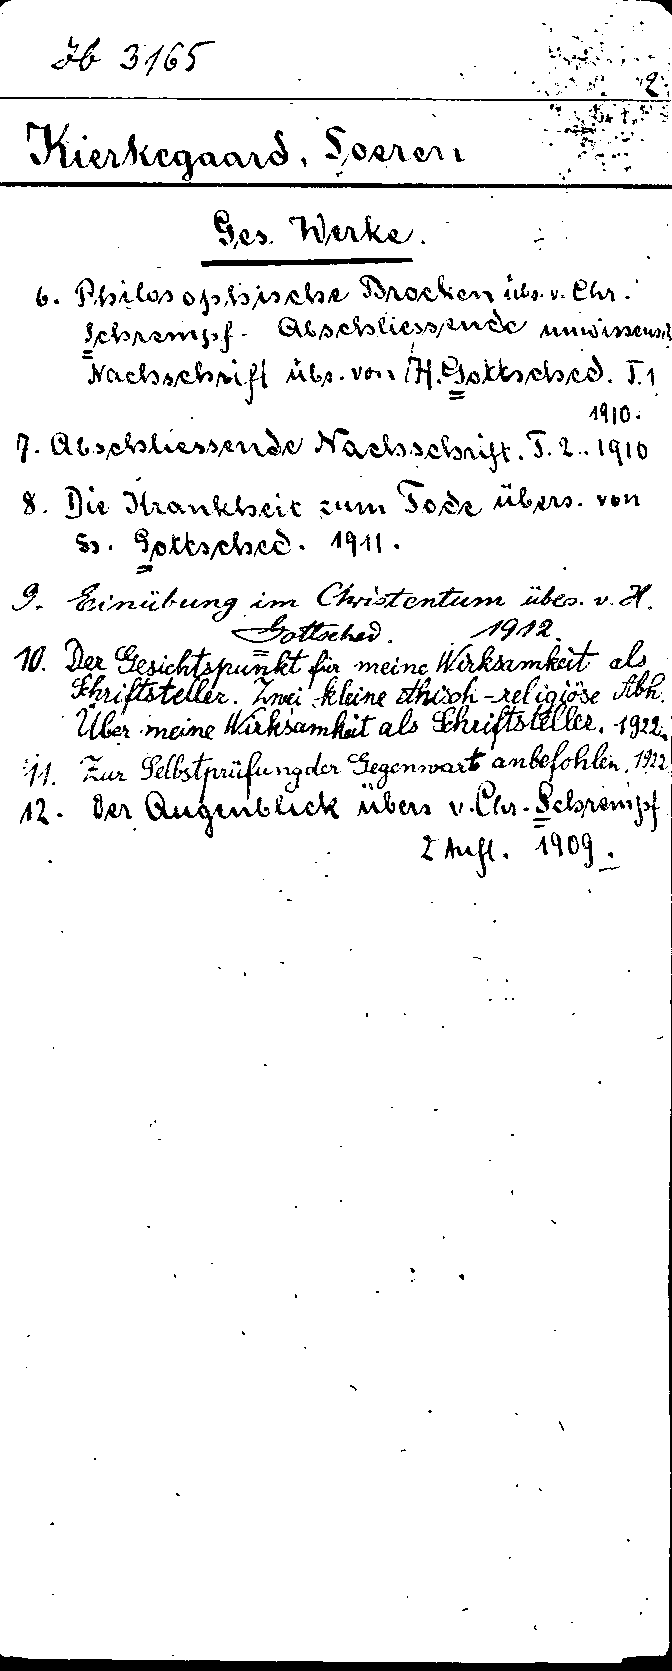 Ib 3165
2
Kierkegaard, Soeren
Ges. Werke.
6. Philosophische Brocken übs. v. Chr.
Schrempf - Abschliessende unwissensch
Nachschrift übs. von H. Gottsched. T. 1
1910.
7. Abschliessende Nachschrift. T. 2.. 1910
8. Die Krankheit zum Tode übers. von
H. Gottsched. 1911.
9. Einübung im Christentum übes. v. H.
Gottsched. 1912.
10. Der Gesichtspunkt für meine Wirksamkeit als
Schriftsteller. Zwei kleine ethisch-religiöse Abh.
Über meine Wirksamkeit als Schriftsteller. 1922.
11. Zur Selbstprüfung der Gegenwart anbefohlen. 1922
12. Der Augenblick übers v. Chr. Schrempf
2 Aufl. 1909.